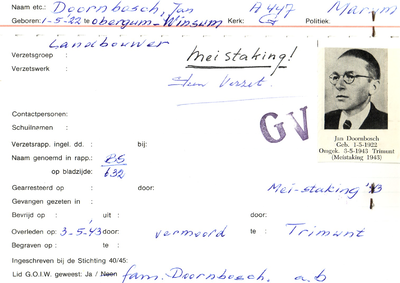 Naam etc.: Doornbosch, Jan A 447 Marum
Geboren: 1-5-22 te Obergum-Winsum Kerk: G Politiek:
Landbouwer
Verzetsgroep : meistaking!
Verzetswerk : Stn Verzet.
Contactpersonen:
Schuilnamen :
GV
Jan Doornbosch
Geb. 1-5-1922
Omgek. 3-5-1943 Trimunt
(Meistaking 1943)
Verzetsrapp. ingel. dd. : bij:
Naam genoemd in rapp.: 85
op bladzijde: 632
Gearresteerd op : door: Mei-staking '43
Gevangen gezeten in :
Bevrijd op : uit : door:
Overleden op: 3-5-43 door: vermoord te : Trimunt
Begraven op : te :
Ingeschreven bij de Stichting 40/45:
Lid G.O.I.W. geweest: Ja / Neen fam. Doornbosch. a.b